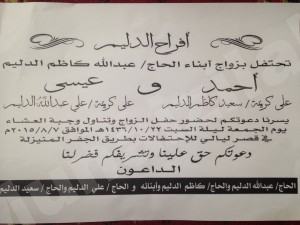 أفراح الدليم
تحتفل بزواج أبناء الحاج/ عبدالله كاظم الدليم
أحمد و عيسى
على كريمة/ سعيد كاظم الدليم على كريمة/ علي عبدالله الدليم
يسرنا دعوتكم لحضور حفل الزواج وتناول وجبة العشاء
يوم الجمعة ليلة السبت ١٤٣٦/١٠/٢٢هـ الموافق ٢٠١٥/٨/٧م
في قصر ليالي للإحتفالات بطريق الجفر المنيزلة
دعوتكم حق علينا وتشريفكم فخر لنا
الداعون
الحاج/ عبدالله الدليم والحاج/ كاظم الدليم وأبنائه و الحاج/ علي الدليم والحاج/ سعيد الدليم